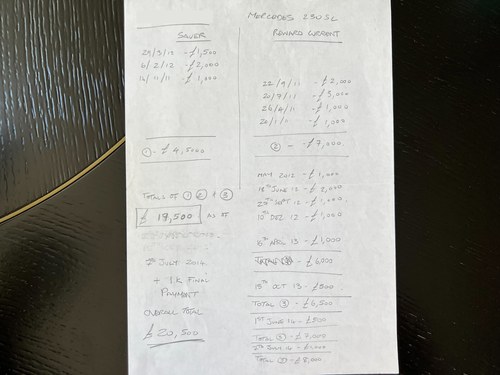 MERCEDES 230SL
SAVER
29/3/12 - £1,500
6/2/12 - £2,000
14/11/11 - £1,000
① - £4,500
TOTALS OF ① ② + ③
£ 19,500 AS AT
JULY 2014
+ 1K FINAL
PAYMENT
OVERALL TOTAL
£20,500
REWARD CURRENT
22/9/11 - £2,000
20/7/11 - £3,000
26/4/11 - £1,000
20/1/11 - £1,000
② - - £7,000
MAY 2012 - £1,000
12TH JUNE 12 - £2,000
29TH SEPT 12 - £1,000
10TH DEC 12 - £1,000
6TH APRIL 13 - £1,000
- £6,000
15TH OCT 13 - £500
TOTAL ③ - £6,500
1ST JUNE 14 - £500
TOTAL ③ - £7,000
JULY 14 - £1,000
TOTAL ③ - £8,000